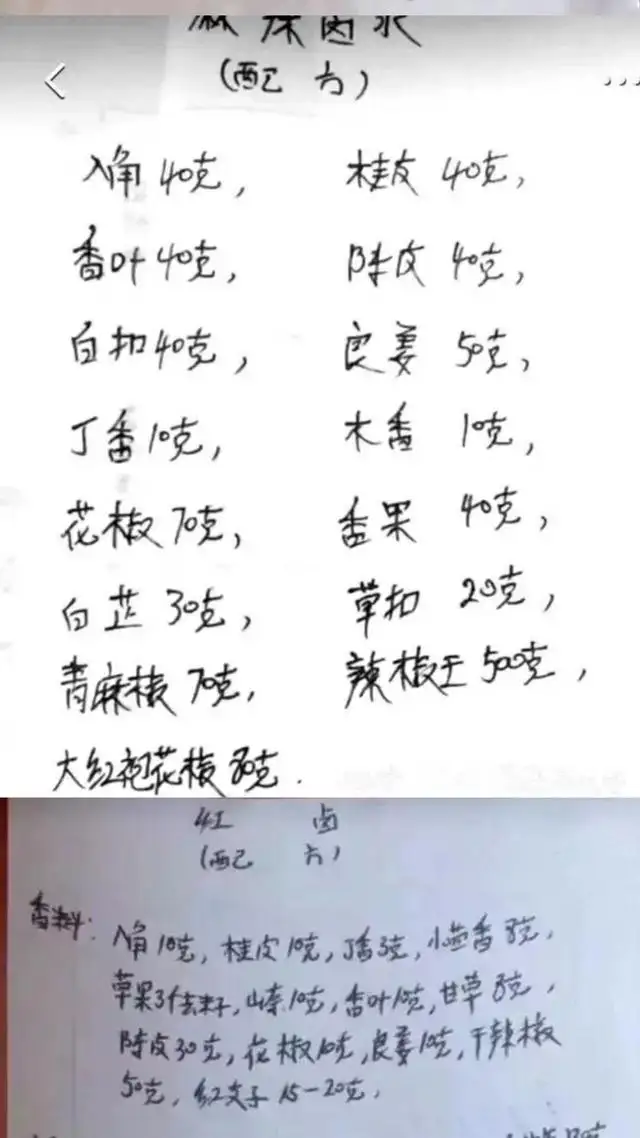 麻辣卤水
(配方)
八角 40克, 桂皮 40克,
香叶 40克, 陈皮 40克,
白扣 40克, 良姜 50克,
丁香 10克, 木香 10克,
花椒 70克, 香果 40克,
白芷 30克, 草扣 20克,
青麻椒 70克, 辣椒王 500克,
大红袍花椒 80克.
红 卤
(配 方)
香料: 八角10克, 桂皮10克, 丁香3克, 小茴香8克,
草果3个去籽, 山奈10克, 香叶10克, 甘草8克,
陈皮30克, 花椒10克, 良姜10克, 干辣椒
50克, 红支子 15-20克,